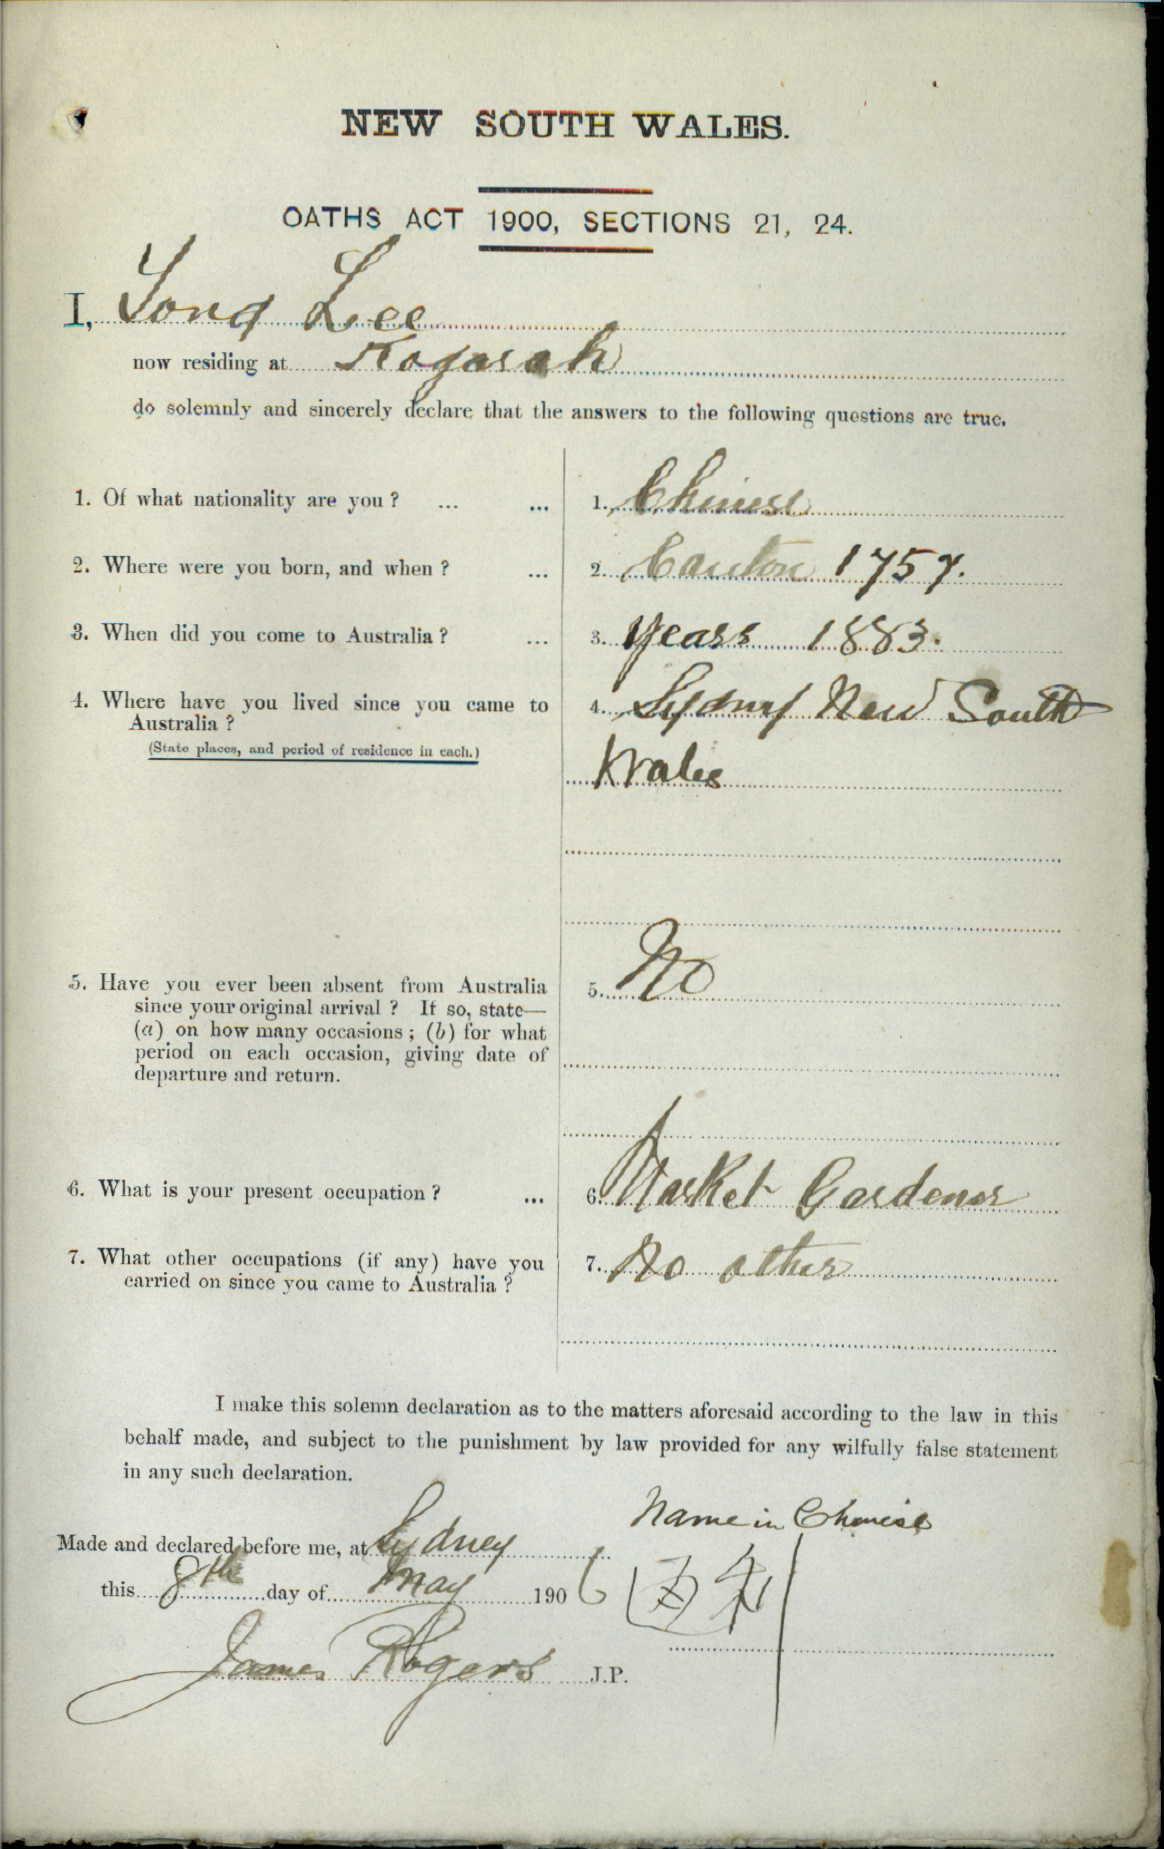 NEW SOUTH WALES.
OATHS ACT 1900, SECTIONS 21, 24.
I, Yong Lee
now residing at Kogarah
do solemnly and sincerely declare that the answers to the following questions are true.
1. Of what nationality are you ? ... ... 1. Chinese
2. Where were you born, and when ? ... 2. Canton 1757.
3. When did you come to Australia ? ... 3. years 1883.
4. Where have you lived since you came to 4. Sydney New South
Australia ?
(State places, and period of residence in each.)
Wales
5. Have you ever been absent from Australia 5. No
since your original arrival ? If so, state—
(a) on how many occasions ; (b) for what
period on each occasion, giving date of
departure and return.
6. What is your present occupation ? ... 6. Market Gardener
7. What other occupations (if any) have you 7. No other
carried on since you came to Australia ?
I make this solemn declaration as to the matters aforesaid according to the law in this
behalf made, and subject to the punishment by law provided for any wilfully false statement
in any such declaration.
Name in Chinese
Made and declared before me, at Sydney
this 8th day of May 1906
James Rogers J.P.